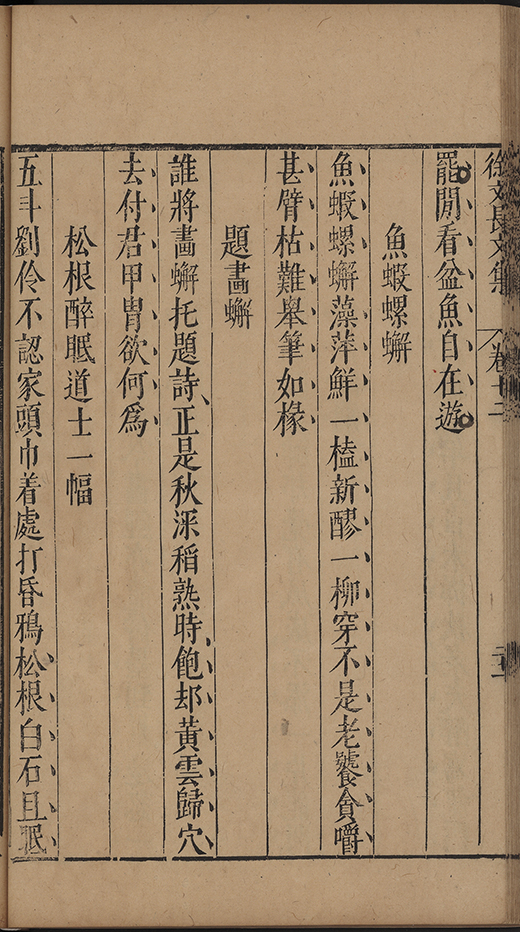 徐文長文集 卷十二
罷閒看盆魚自在遊
魚蝦螺蠏
魚蝦螺蠏藻萍鮮一榼新醪一柳穿不是老饕貪嚼
甚臂枯難舉筆如椽
題畫蠏
誰將畫蠏托題詩正是秋深稻熟時飽却黃雲歸穴
去付君甲冑欲何爲
松根醉眠道士一幅
五斗劉伶不認家頭巾着處打昏鴉松根白石且眠